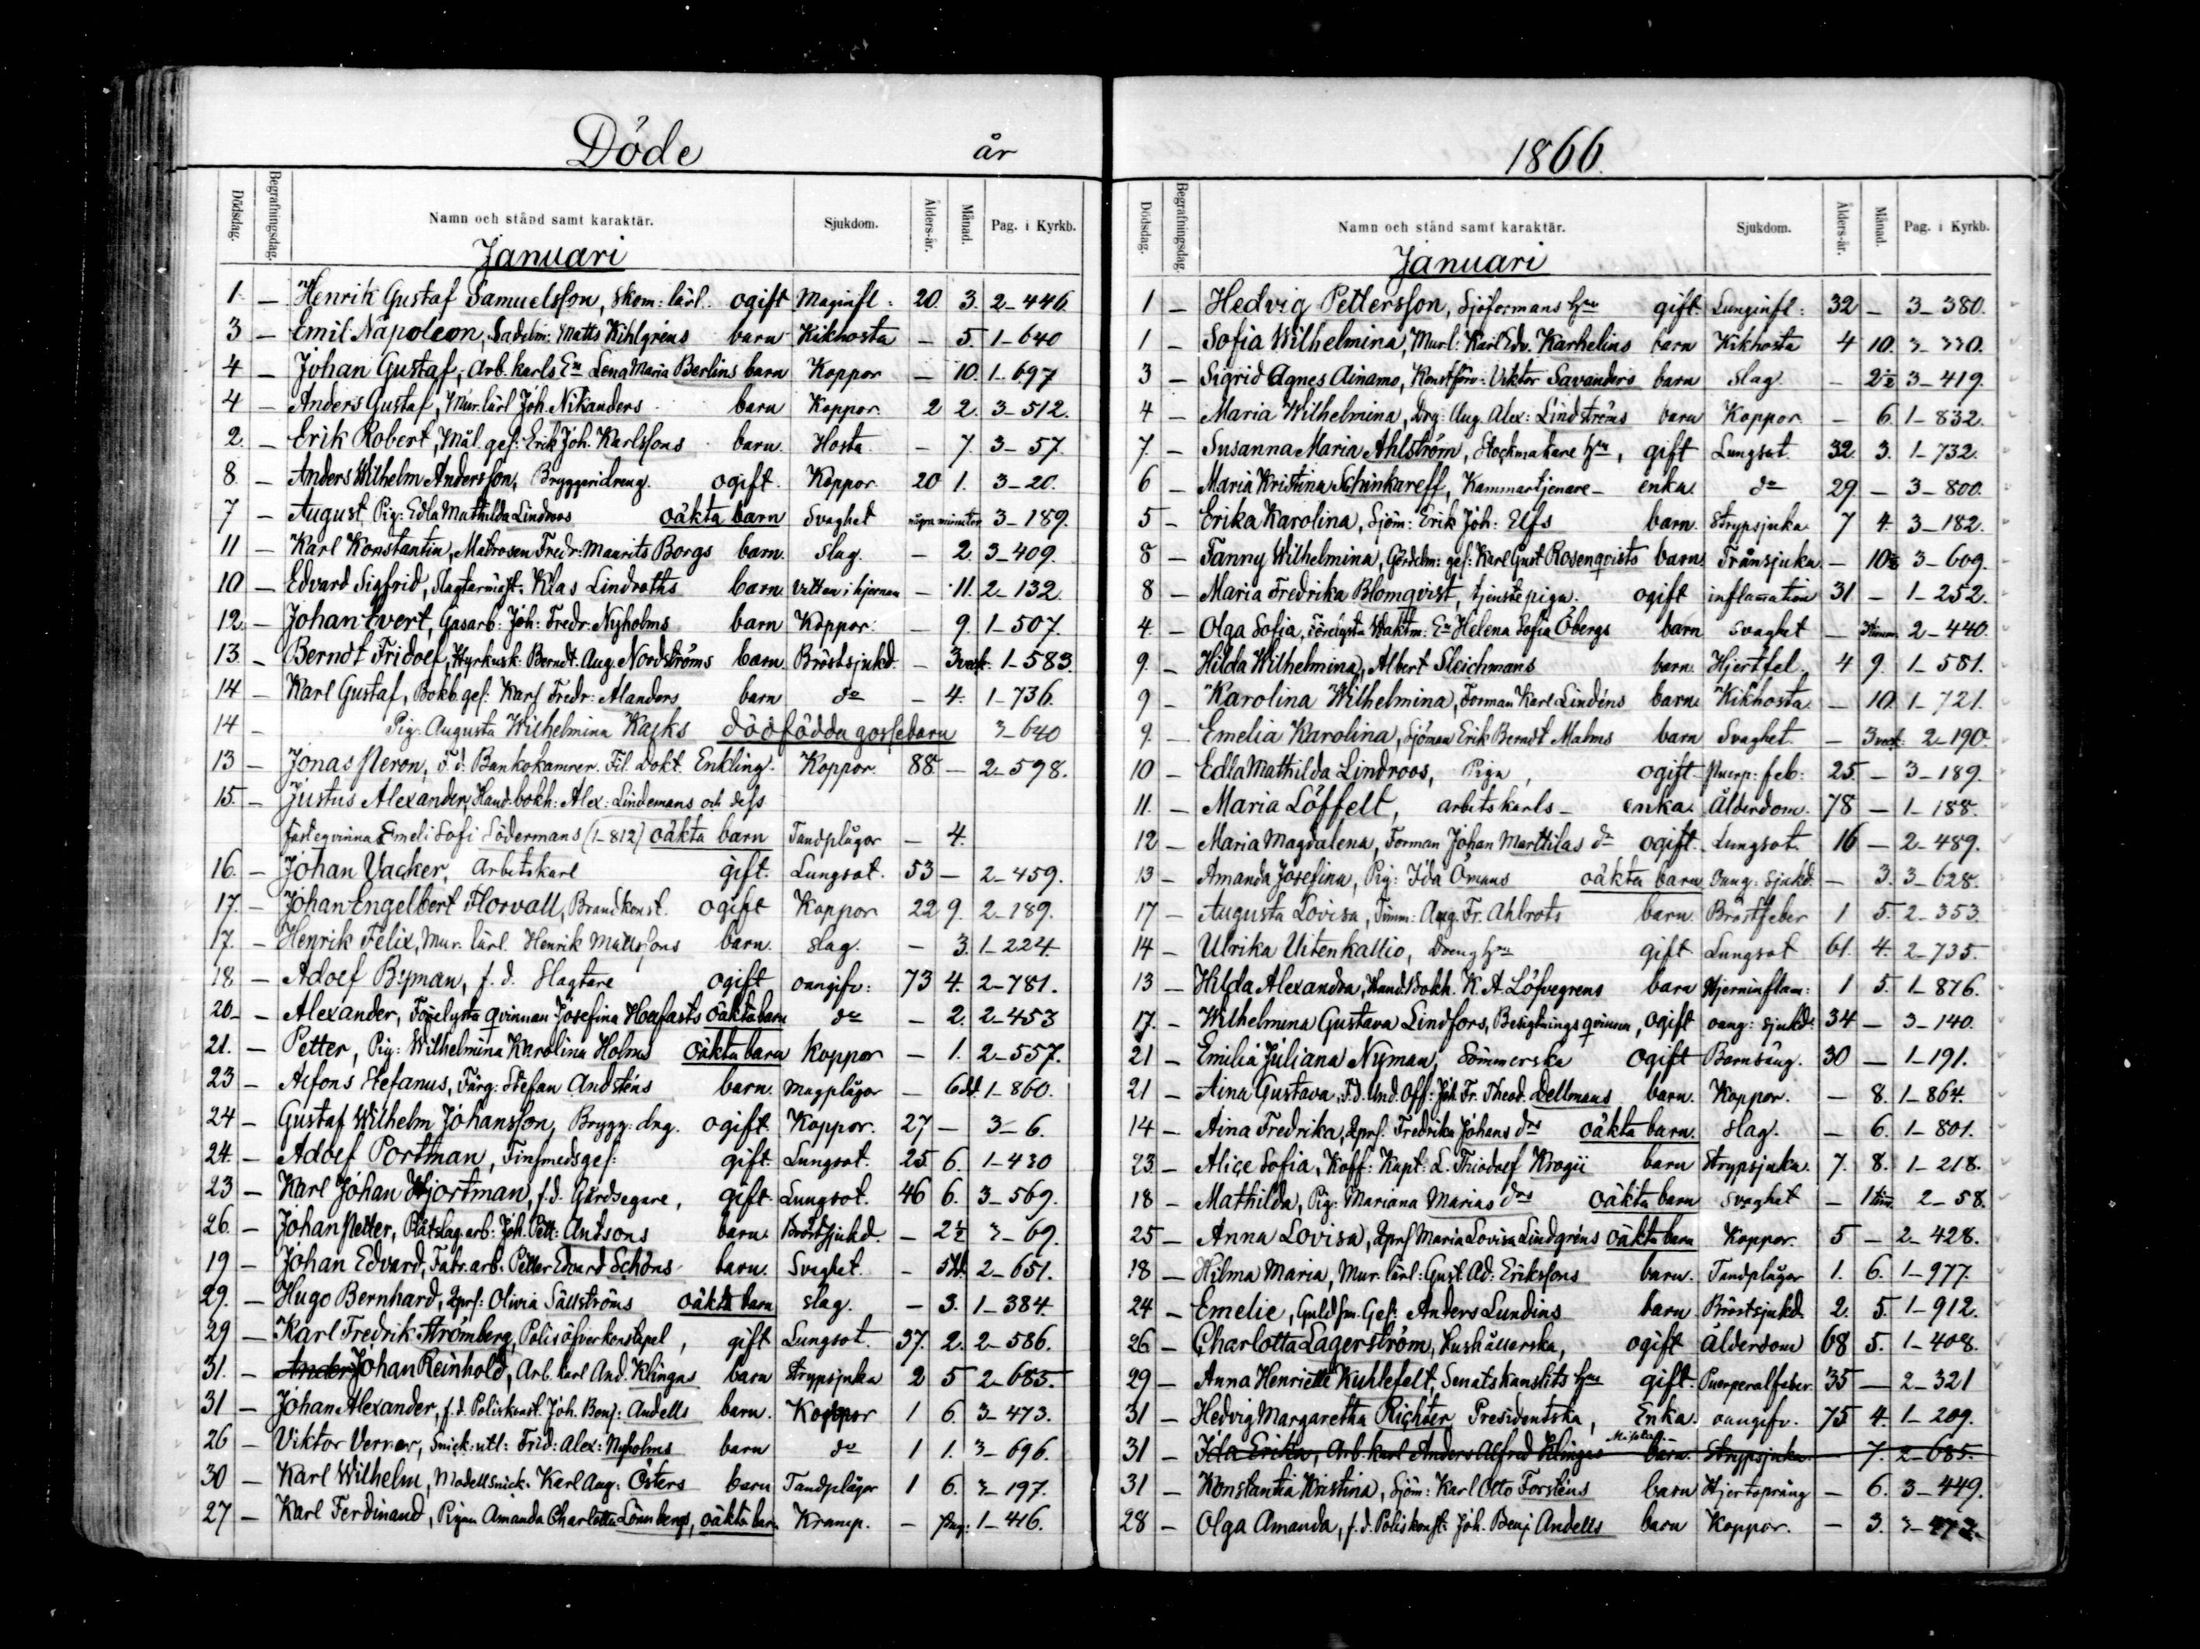 Döde år
Dödsdag. Begrafningsdag. Namn och stånd samt karaktär. Sjukdom. Ålders-år. Månad. Pag. i Kyrkb.
Januari
1. — Henrik Gustaf Samuelsson, Skom: lärl. ogift Maginfl: 20. 3. 2-446
3 — Emil Napoleon, Sadelm: Matts Kihlgréns barn Kikhosta — 5. 1-640
4 — Johan Gustaf, Arb. karls En Lena Maria Berlins barn Koppor — 10. 1-697
4 — Anders Gustaf, Mur. lärl Joh. Nikanders barn Koppor 2 2. 3-512.
2. — Erik Robert, Mål. ges: Erik Joh. Karlssons barn. Hosta — 7. 3-57.
8. — Anders Wilhelm Andersson, Bryggeridreng. ogift. Koppor 20 1. 3-20.
7 — August, Pig: Edla Mathilda Lindroos oäkta barn Svaghet några minuter 3-189.
11 — Karl Konstantin, Matrosen Fredr: Maurits Borgs barn. Slag. — 2. 3-409.
10 — Edvard Sigfrid, Slagtarmäst: Klas Lindroths barn. Vatten i hjernan — 11. 2-132.
12 — Johan Evert, Gasarb: Joh: Fredr: Nyholms barn Koppor. — 9. 1-507.
13. — Berndt Fridolf, Hyrkusk: Berndt. Aug. Nordströms barn Bröstsjukd. — 3 veck. 1-583.
14 — Karl Gustaf, Bokb. ges: Karl Fredr: Alanders barn do — 4. 1-736.
14 — Pig: Augusta Wilhelmina Kasks dödfödda gossebarn 3-640
13 — Jonas Neron, F.d. Bankokamrer. Fil. Dokt. Enkling. Koppor. 88 — 2-598.
15. — Justus Alexander, Hand. bokh: Alex: Lindemans och dess
fästeqvinna Emeli Sofi Södermans (1-812) oäkta barn Tandplågor — 4.
16. — Johan Vacker, Arbetskarl gift. Lungsot. 53 — 2-459.
17. — Johan Engelbert Florvall, Brandkonst. ogift Koppor 22 9. 2-189.
17. — Henrik Felix, Mur. lärl. Henrik Mattssons barn. Slag. — 3. 1-224.
18 — Adolf Byman, f.d. Slagtare ogift oangifv: 73 4. 2-781.
20 — Alexander, Förelysta qvinnan Josefina Hoffasts oäkta barn do — 2. 2-453
21. — Petter, Pig: Wilhelmina Karolina Holms oäkta barn Koppor — 1. 2-557.
23 — Alfons Stefanus, Färg: Stefan Andsténs barn. Magplågor — 6 dd. 1-860.
24 — Gustaf Wilhelm Johansson, Brygg: dng. ogift Koppor. 27 — 3-6.
24. — Adolf Portman, Finsmedsges: gift. Lungsot. 25 6. 1-430
23 — Karl Johan Hjortman, f.d. Gårdsegare, gift Lungsot. 46 6. 3-569.
26. — Johan Petter, Plåtslag. arb: Joh. Pett: Antsons barn. Bröstsjukd. — 2½ 3-69.
19 — Johan Edvard, Fabr. arb. Petter Edvard Schöns barn. Svaghet. — 5 dd. 2-651.
29. — Hugo Bernhard, Olivia Sällströms oäkta barn Slag. — 3. 1-384.
29 — Karl Fredrik Strömberg, Polisöfverkonstapel, gift Lungsot. 37. 2. 2-586.
31. — Johan Reinhold, Arb. karl And. Klingas barn Strypsjuka 2 5 2-685.
31 — Johan Alexander, f.d. Poliskonst. Joh. Benj: Andells barn. Koppor 1 6. 3-473.
26 — Viktor Verner, Snick. utl: Frid: Alex: Nyholms barn do 1 1. 3-696.
30 — Karl Wilhelm, Modellsnick. Karl Aug: Östers barn Tandplågor 1 6. 3-197.
27 — Karl Ferdinand, Pigan Amanda Charlotta Lönnbergs, oäkta barn Kramp. — 1-416.
1866.
Dödsdag. Begrafningsdag. Namn och stånd samt karaktär. Sjukdom. Ålders-år. Månad. Pag. i Kyrkb.
Januari
1 — Hedvig Pettersson, Sjöformans hru gift. Lunginfl: 32 — 3-380.
1 — Sofia Wilhelmina, Murl: Karl Edv. Karhelins barn Kikhosta 4 10. 3-330.
3 — Sigrid Agnes Ainamo, Konstförv: Viktor Savanders barn Slag. — 2½ 3-419.
4 — Maria Wilhelmina, Drg: Aug. Alex: Lindströms barn Koppor — 6. 1-832.
7. — Susanna Maria Ahlström, Klockmakare hru, gift Lungsot. 32 3. 1-732.
6 — Maria Kristina Schinkareff, Kammartjenare- enka. do 29 — 3-800.
5 — Erika Karolina, Sjöm: Erik Joh: Elfs barn. Strypsjuka 7 4. 3-182.
8 — Fanny Wilhelmina, Gördelm: ges: Karl Gust Rosenqvists barn Trånsjuka — 10½ 3-609.
8 — Maria Fredrika Blomqvist, tjenstepiga. ogift inflamation 31 — 1-252.
4. — Olga Sofia, Förelysta Waktm: En Helena Sofia Öbergs barn Svaghet — 2-440.
9. — Hilda Wilhelmina, Albert Sleichmans barn. Hjertfel. 4 9. 1-581.
9 — Karolina Wilhelmina, Forman Karl Lindéns barn Kikhosta — 10. 1-721.
9. — Emelia Karolina, Sjöman Erik Berndt Malms barn Svaghet. — 3 veck: 2-190.
10 — Edla Mathilda Lindroos, Piga, ogift Puerp: feb: 25. — 3-189.
11. — Maria Löffelt, arbetskarls- enka. Ålderdom. 78 — 1-188.
12 — Maria Magdalena, Forman Johan Marttilas dr ogift. Lungsot. 16 — 2-489.
13 — Amanda Josefina, Pig: Ida Ömans oäkta barn oang: sjukd. — 3. 3-628.
17 — Augusta Lovisa, Timm: Aug. Fr. Ahlrots barn. Bröstfeber 1 5. 2-353.
14 — Ulrika Uitenkallio, Dreng hru gift Lungsot 61. 4. 2-735.
13 — Hilda Alexandra, Hand. Bokh. K.A. Löfvegrens barn Hjerninflam: 1 5. 1-876.
17. — Wilhelmina Gustava Lindfors, Besigtnings qvinna, ogift oang: sjukd: 34 — 3-140.
21 — Emilia Juliana Nyman, Sömmerska ogift Barnsäng. 30 — 1-191.
21 — Aina Gustava, F.d. Und. Off: Joh. Fr. Theod. Dellmans barn. Koppor. — 8. 1-864.
14 — Aina Fredrika, Fredrika Johans drs oäkta barn. Slag. — 6. 1-801.
23 — Alice Sofia, Koff: Kapt: L. Thiodolf Krogii barn Strypsjuka. 7. 8. 1-218.
18 — Mathilda, Pig: Mariana Marias drs oäkta barn Svaghet — 1 tim. 2-58.
25 — Anna Lovisa, Maria Lovisa Lindgréns oäkta barn Koppor. 5 — 2-428.
18 — Hilma Maria, Mur. lärl: Gust. Ad: Erikssons barn. Tandplågor 1. 6. 1-977.
24 — Emelie, Guldsm. Ges: Anders Lundins barn Bröstsjukd 2. 5. 1-912.
26 — Charlotta Lagerström, Hushållerska, ogift Ålderdom 68 5. 1-408.
29 — Anna Henriette Kuhlefelt, Senatskanslits hru gift. Puerperalfeber 35 — 2-321
31 — Hedvig Margaretha Richter Presidentska, Enka. oangifv. 75 4. 1-209.
31 — Ida Erika, Arb. karl Anders Alfred Klingas barn. Strypsjuka 7. 2-685.
31 — Konstantia Kristina, Sjöm: Karl Otto Forsténs barn Hjertspräng — 6. 3-449.
28 — Olga Amanda, f.d. Poliskonst: Joh. Benj Andells barn Koppor. — 3. 3-473.